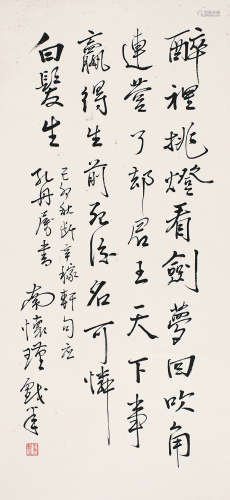 醉裡挑燈看劍夢回吹角
連營了却君王天下事
贏得生前死後名可憐
白髮生
己卯秋断辛稼軒句应
孔丹屬書
南懷瑾戲筆